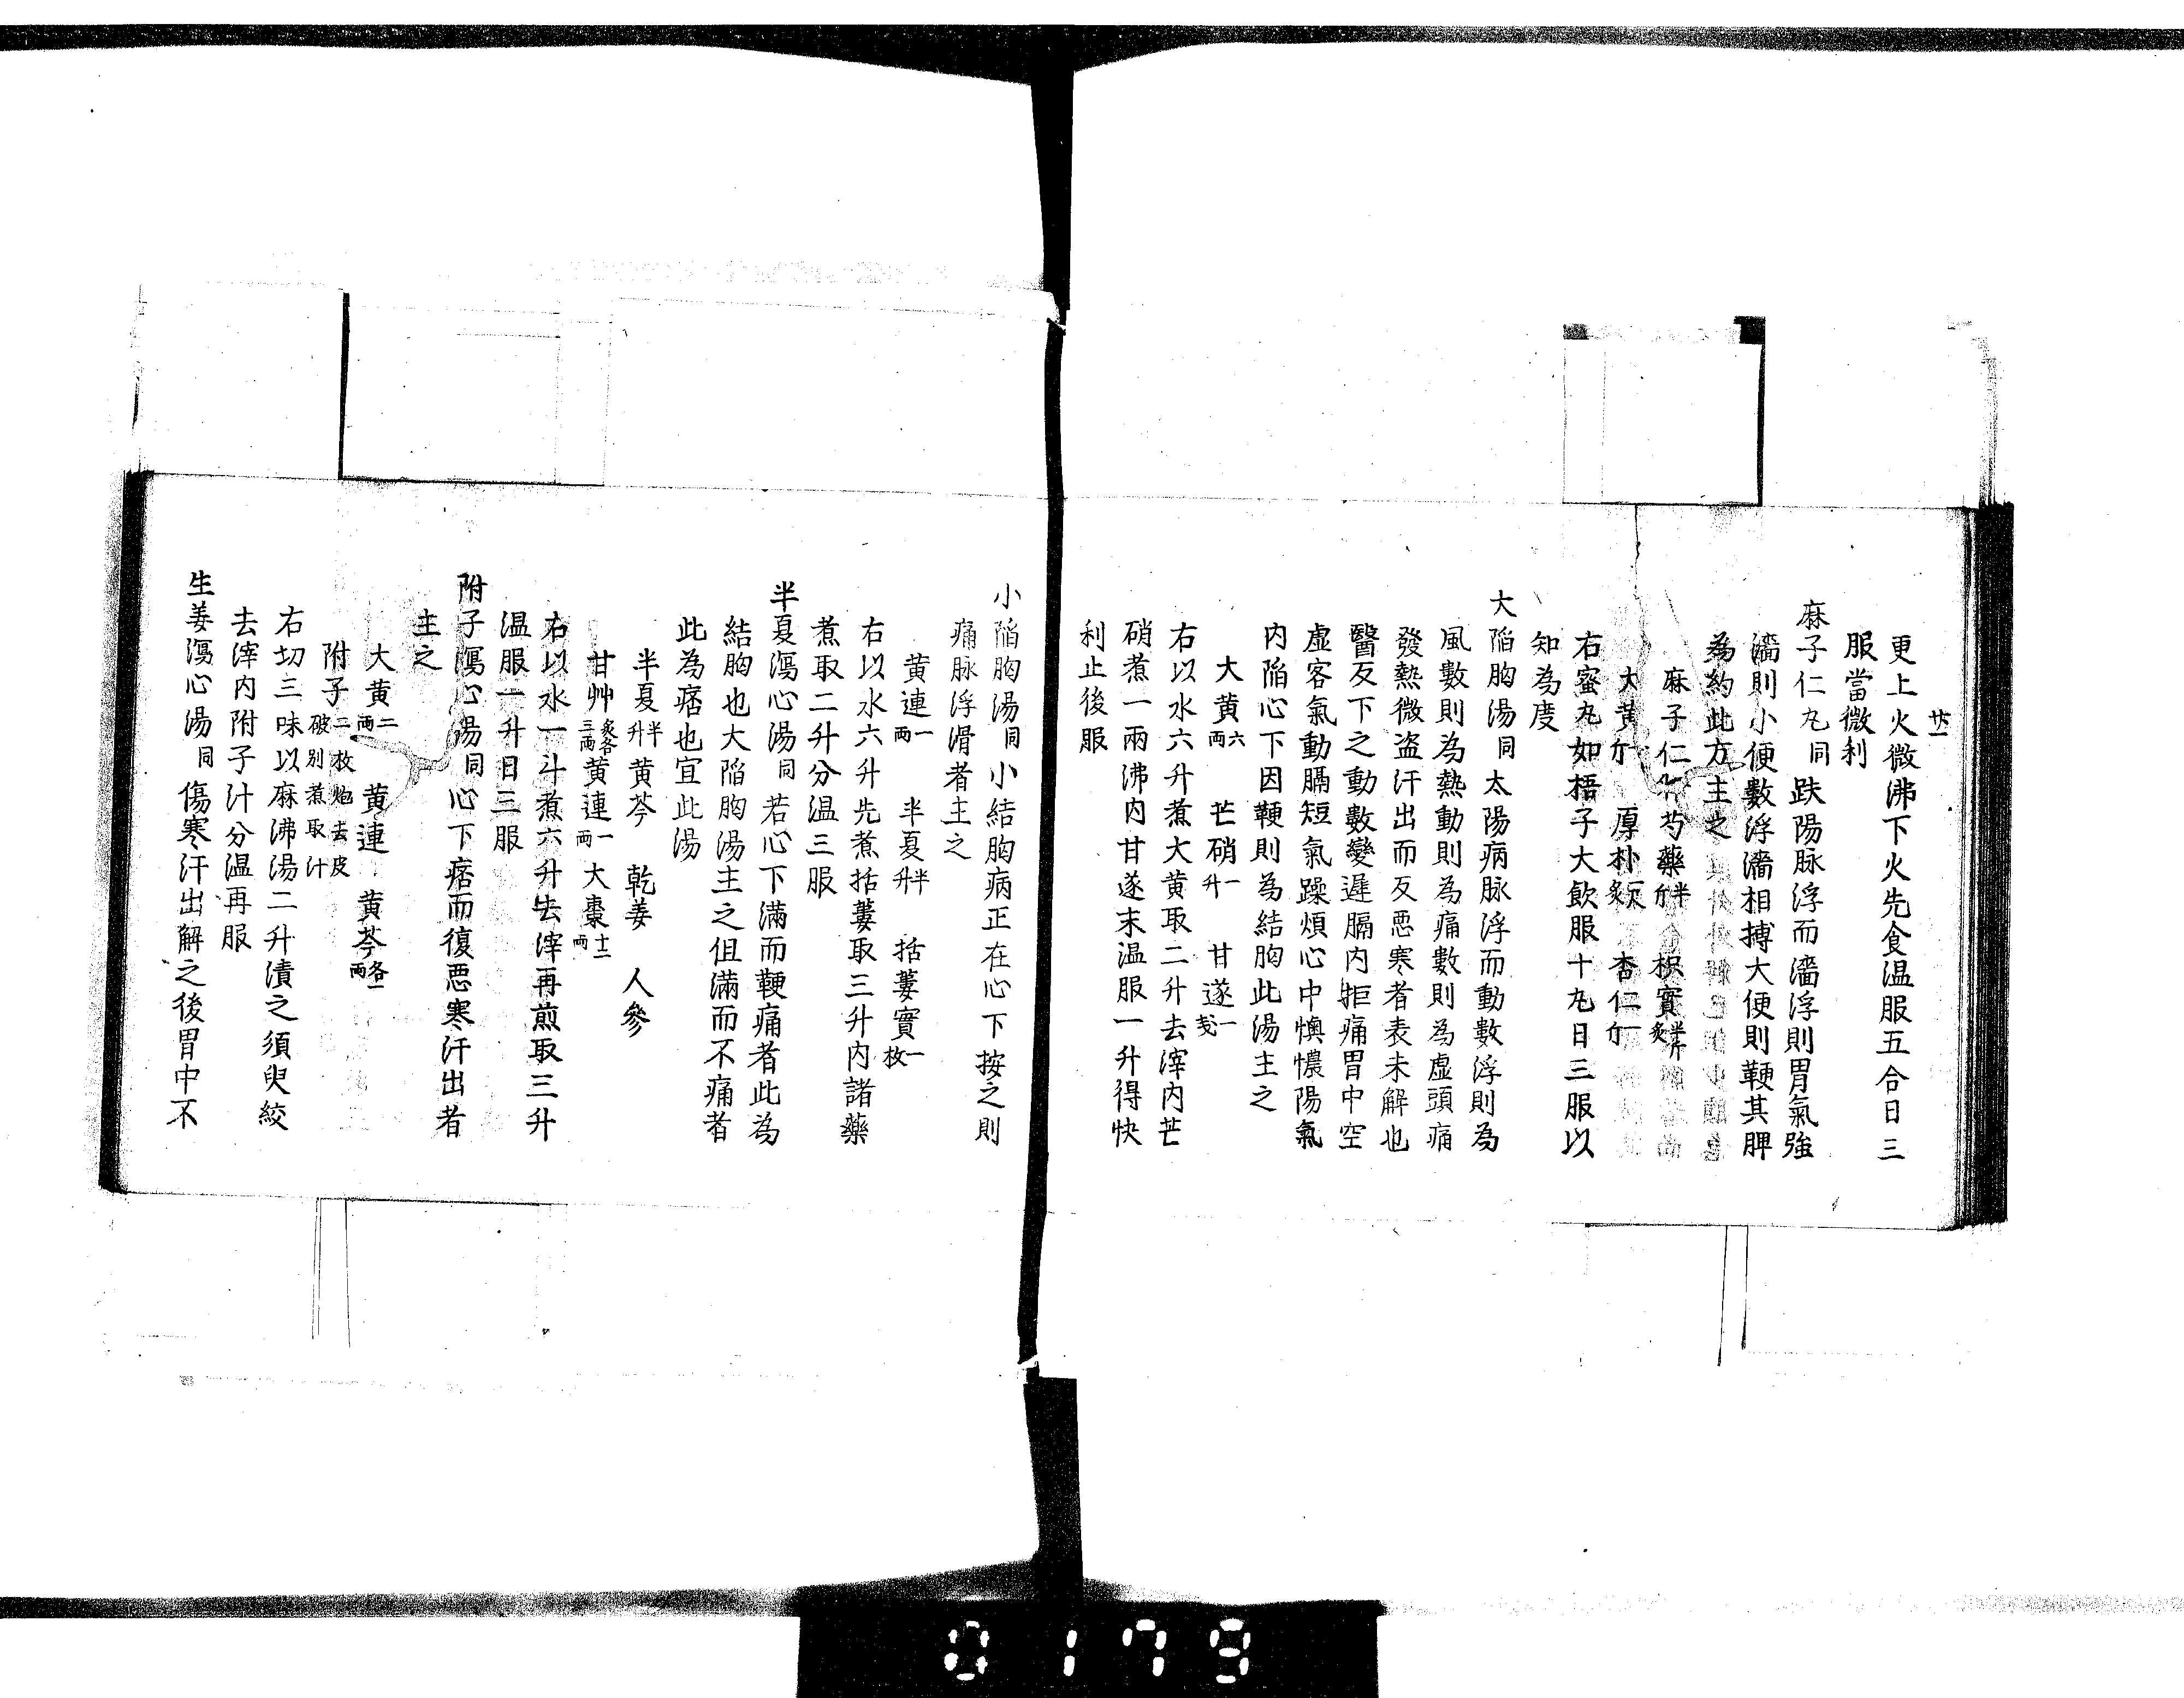 廿一
更上火微沸下火先食温服五合日三
服當微利
麻子仁丸同 趺陽脉浮而濇浮則胃氣強
濇則小便數浮濇相搏大便則鞕其脾
為約此方主之
麻子仁 芍藥半斤 枳實半斤炙
大黄斤 厚朴炙 杏仁一斤
右蜜丸如梧子大飲服十丸日三服以
知為度
大陥胸湯同 太陽病脉浮而動數浮則為
風數則為熱動則為痛數則為虛頭痛
發熱微盗汗出而反悪寒者表未解也
醫反下之動數變遲膈内拒痛胃中空
虛客氣動膈短氣躁煩心中懊憹陽氣
内陥心下因鞕則為結胸此湯主之
大黄六両 芒硝一升 甘遂一戔
右以水六升煮大黄取二升去滓内芒
硝煮一兩沸内甘遂末温服一升得快
利止後服
小陥胸湯同 小結胸病正在心下按之則
痛脉浮滑者主之
黄連一両 半夏半升 括蔞實一枚
右以水六升先煮括蔞取三升内諸藥
煮取二升分温三服
半夏瀉心湯同 若心下滿而鞕痛者此為
結胸也大陥胸湯主之但滿而不痛者
此為痞也宜此湯
半夏半升 黄芩 乾姜 人參
甘艸炙各三両 黄連一両 大棗十二両
右以水一斗煮六升去滓再煎取三升
温服一升日三服
附子瀉心湯同 心下痞而復悪寒汗出者
主之
大黄二両 黄連 黄芩各一両
附子二枚炮去皮破別煮取汁
右切三味以麻沸湯二升漬之須臾絞
去滓内附子汁分温再服
生姜瀉心湯同 傷寒汗出解之後胃中不
0179